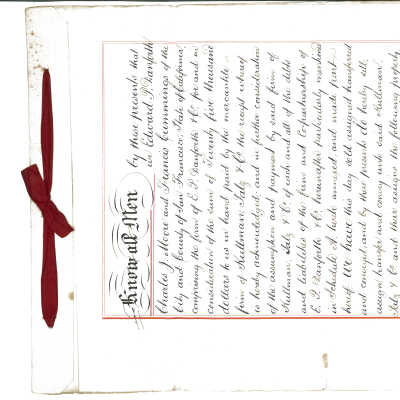 Know all Men
by these presents that
we Edward P. Danforth
Charles J. Moore and Francis Cummings of the
City and County of San Francisco, State of California,
composing the firm of E. P. Danforth & Co. for and in
consideration of the sum of Twenty five thousand
dollars to us in hand paid by the mercantile
firm of Kullman, Salz & Co. the receipt whereof
is hereby acknowledged, and in further consideration
of the assumption and payment by said firm of
Kullman, Salz & Co. of each and all of the debts
and liabilities of the firm and Copartnership of
E. P. Danforth & Co. hereinafter particularly mentioned
in Schedule of debts annexed and made part
hereof We have this day sold assigned transferred
and conveyed, and by these presents do hereby sell,
assign transfer and convey unto said Kullman,
Salz & Co. and their assigns the following property